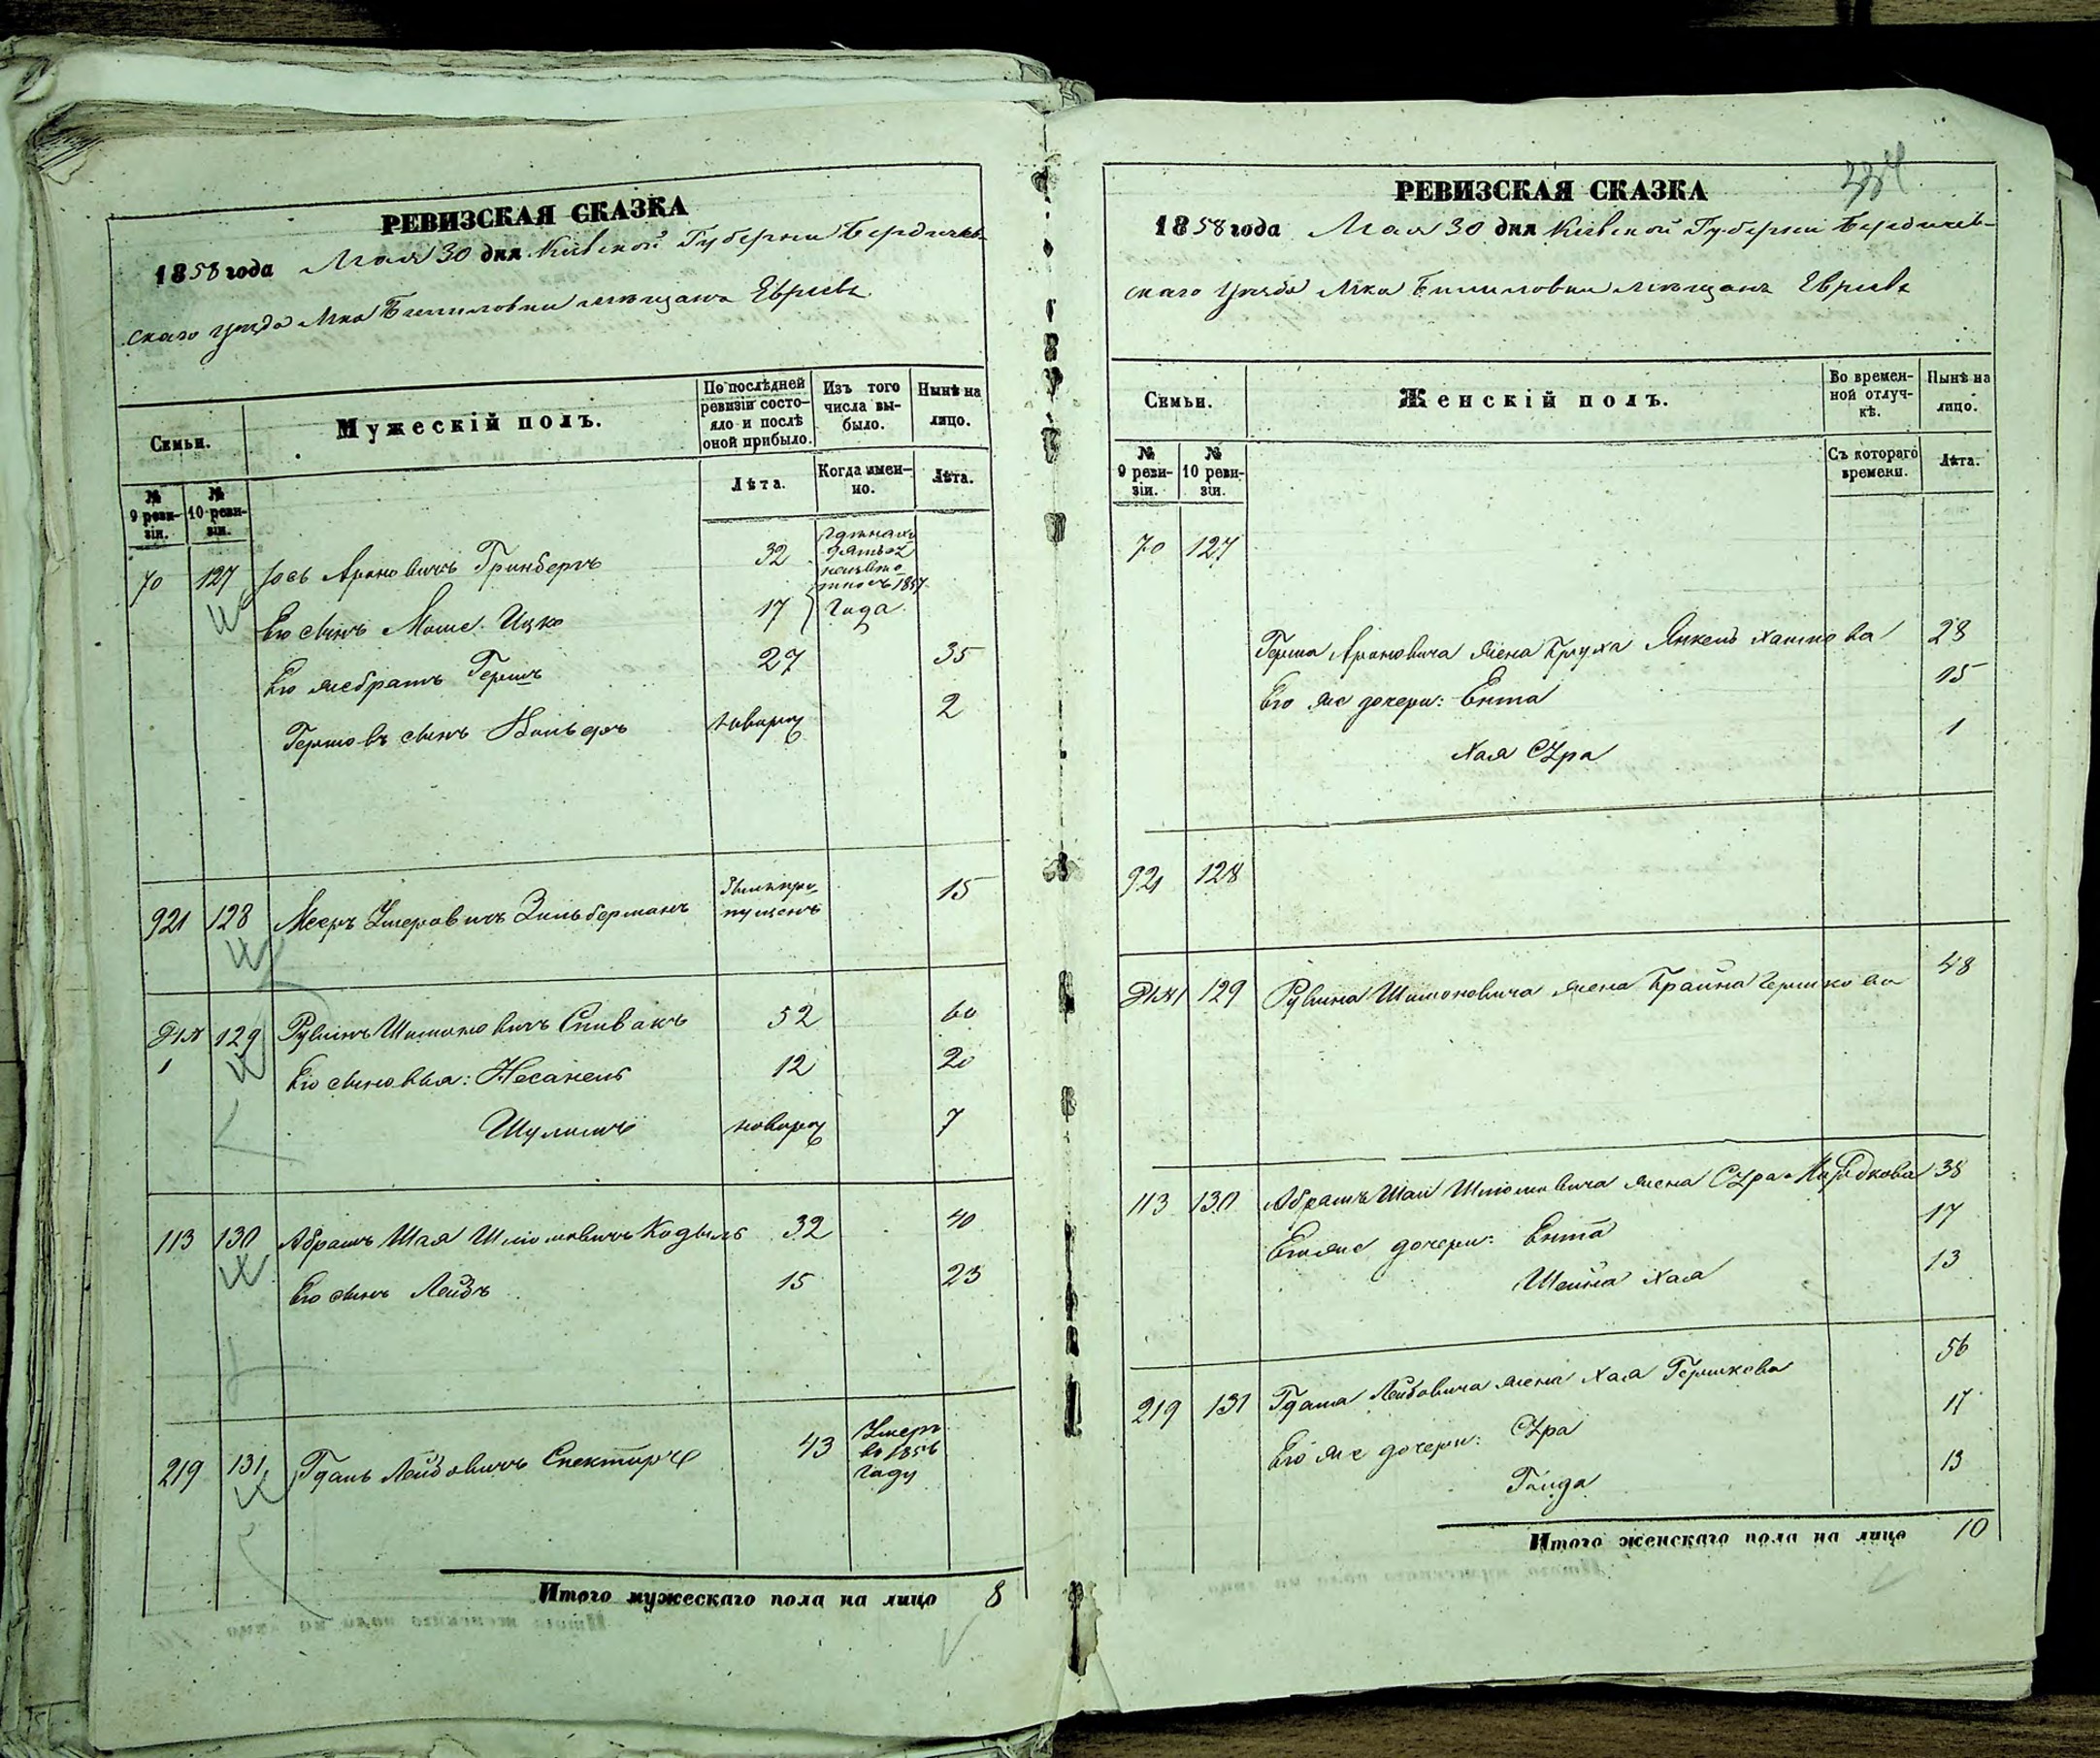 РЕВИЗСКАЯ СКАЗКА
1858 года Мая 30 дня Кіевской Губерніи Бердичев-
скаго уѣзда Мка мѣщанъ Евреевъ
Семьи.
Мужескій полъ.
По послѣдней ревизіи состо-яло и послѣ оной прибыло.
Изъ того числа вы-было.
Нынѣ на лицо.
№ 9 реви-зіи.
№ 10 реви-зіи.
Лѣта.
Когда имен-но.
Лѣта.
70 127 Іось Ароновичъ Гринбергъ 32
1857
Его сынъ Моше Ицко 17 Года
Его же братъ Гершъ 27 35
Гершовъ сынъ новорож 2
921 128 Мееръ Умеровичъ Зильберманъ былъ про-пущенъ 15
129 Рувинъ Шимоновичъ Спивакъ 52 60
1 Его сыновья: Несанель 12 20
Шулимъ новорож 7
113 130 Абрамъ Шая Шліомовичъ 32 40
Его сынъ Лейбъ 15 23
219 131 Гдаль Лейбовичъ Спекторъ 43 Умеръ въ 1856 году
Итого мужескаго пола на лицо 8
РЕВИЗСКАЯ СКАЗКА
1858 года Мая 30 дня Кіевской Губерніи Бердичев-
скаго уѣзда Мка мѣщанъ Евреевъ
Семьи.
Женскій полъ.
Во времен-ной отлуч-кѣ.
Нынѣ на лицо.
№ 9 реви-зіи.
№ 10 реви-зіи.
Съ котораго времени.
Лѣта.
70 127
Герша Ароновича жена Янкель 28
Его же дочери: Ента 15
Хая Сура 1
921 128
129 Рувина Шимоновича жена Крайна Гершкова 48
113 130 Абрамъ Шаи Шліомовича жена Сура 38
Его же дочери: Ента 17
Шейна Хая 13
219 131 Гдаля Лейбовича жена Хая Гершкова 56
Его же дочери: Сура 17
Голда 13
Итого женскаго пола на лицо 10